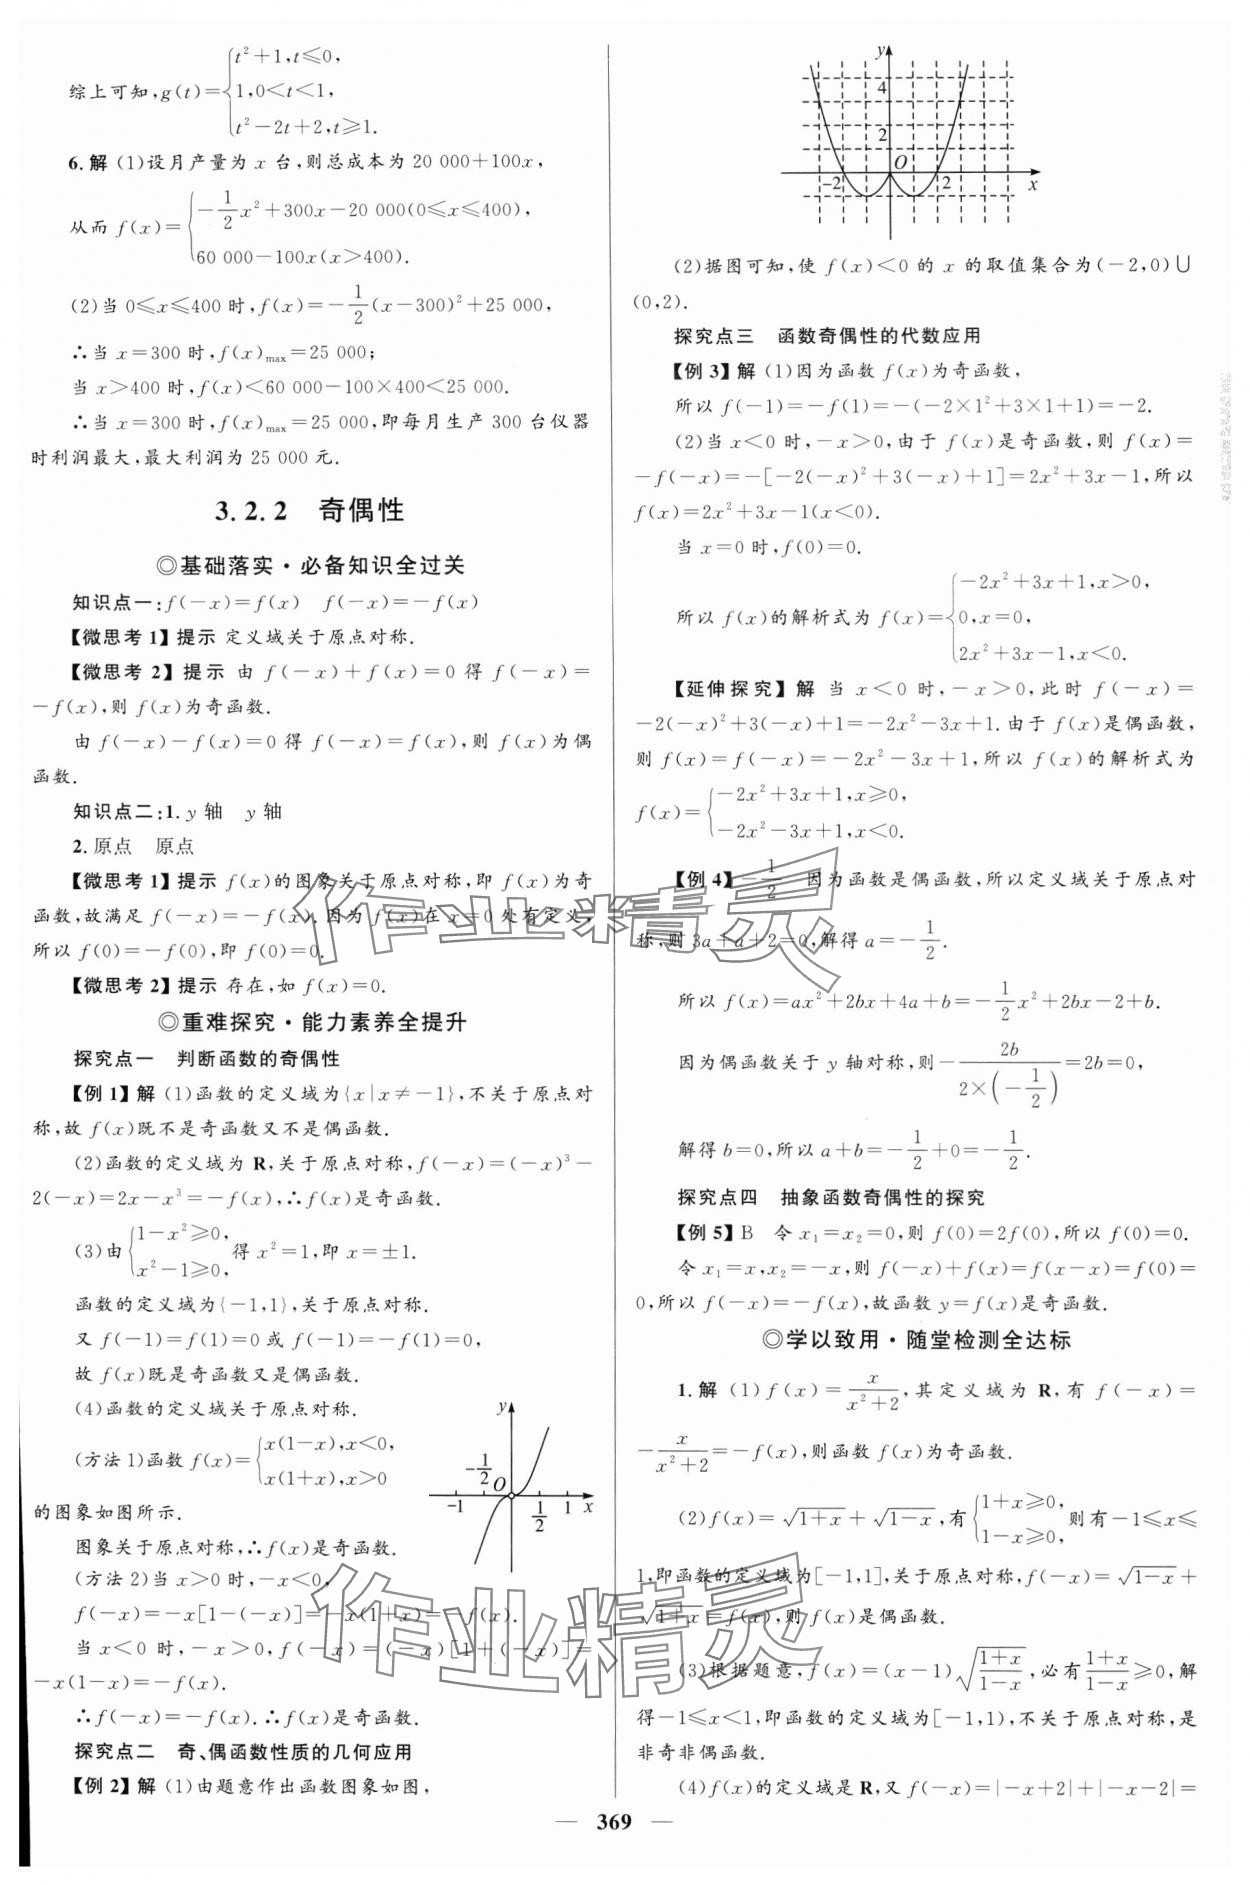 综上可知,g(t)={t²+1,t≤0,
1,0<t<1,
t²-2t+2,t≥1.
6.解 (1)设月产量为 x 台,则总成本为 20 000+100x,
从而 f(x)={-1/2x²+300x-20 000(0≤x≤400),
60 000-100x(x>400).
(2)当 0≤x≤400 时,f(x)=-1/2(x-300)²+25 000,
∴当 x=300 时,f(x)max=25 000;
当 x>400 时,f(x)<60 000-100×400<25 000.
∴当 x=300 时,f(x)max=25 000,即每月生产 300 台仪器
时利润最大,最大利润为 25 000 元.
3.2.2 奇偶性
◎基础落实·必备知识全过关
知识点一:f(-x)=f(x) f(-x)=-f(x)
【微思考1】提示 定义域关于原点对称.
【微思考2】提示 由 f(-x)+f(x)=0 得 f(-x)=
-f(x),则 f(x)为奇函数.
由 f(-x)-f(x)=0 得 f(-x)=f(x),则 f(x)为偶
函数.
知识点二:1.y 轴 y 轴
2.原点 原点
【微思考1】提示 f(x)的图象关于原点对称,即 f(x)为奇
函数,故满足 f(-x)=-f(x).因为 f(x)在 x=0 处有定义,
所以 f(0)=-f(0),即 f(0)=0.
【微思考2】提示 存在,如 f(x)=0.
◎重难探究·能力素养全提升
探究点一 判断函数的奇偶性
【例1】解 (1)函数的定义域为{x|x≠-1},不关于原点对
称,故 f(x)既不是奇函数又不是偶函数.
(2)函数的定义域为 R,关于原点对称,f(-x)=(-x)³-
2(-x)=2x-x³=-f(x),∴f(x)是奇函数.
(3)由{1-x²≥0,
x²-1≥0,得 x²=1,即 x=±1.
函数的定义域为{-1,1},关于原点对称.
又 f(-1)=f(1)=0 或 f(-1)=-f(1)=0,
故 f(x)既是奇函数又是偶函数.
(4)函数的定义域关于原点对称.
(方法1)函数 f(x)={x(1-x),x<0,
x(1+x),x>0
的图象如图所示.
y
-1/2
O
-1 1/2 1 x
图象关于原点对称,∴f(x)是奇函数.
(方法2)当 x>0 时,-x<0,
f(-x)=-x[1-(-x)]=-x(1+x)=-f(x).
当 x<0 时,-x>0,f(-x)=(-x)[1+(-x)]=
-x(1-x)=-f(x).
∴f(-x)=-f(x).∴f(x)是奇函数.
探究点二 奇、偶函数性质的几何应用
【例2】解 (1)由题意作出函数图象如图,
y
4
2
O
-2 2 x
(2)据图可知,使 f(x)<0 的 x 的取值集合为(-2,0)∪
(0,2).
探究点三 函数奇偶性的代数应用
【例3】解 (1)因为函数 f(x)为奇函数,
所以 f(-1)=-f(1)=-(-2×1²+3×1+1)=-2.
(2)当 x<0 时,-x>0,由于 f(x)是奇函数,则 f(x)=
-f(-x)=-[-2(-x)²+3(-x)+1]=2x²+3x-1,所以
f(x)=2x²+3x-1(x<0).
当 x=0 时,f(0)=0.
所以 f(x)的解析式为 f(x)={-2x²+3x+1,x>0,
0,x=0,
2x²+3x-1,x<0.
【延伸探究】解 当 x<0 时,-x>0,此时 f(-x)=
-2(-x)²+3(-x)+1=-2x²-3x+1.由于 f(x)是偶函数,
则 f(x)=f(-x)=-2x²-3x+1,所以 f(x)的解析式为
f(x)={-2x²+3x+1,x≥0,
-2x²-3x+1,x<0.
【例4】-1/2 因为函数是偶函数,所以定义域关于原点对
称,则 3a+a+2=0,解得 a=-1/2.
所以 f(x)=ax²+2bx+4a+b=-1/2x²+2bx-2+b.
因为偶函数关于 y 轴对称,则-2b/(2×(-1/2))=2b=0,
解得 b=0,所以 a+b=-1/2+0=-1/2.
探究点四 抽象函数奇偶性的探究
【例5】B 令 x₁=x₂=0,则 f(0)=2f(0),所以 f(0)=0.
令 x₁=x,x₂=-x,则 f(-x)+f(x)=f(x-x)=f(0)=
0,所以 f(-x)=-f(x),故函数 y=f(x)是奇函数.
◎学以致用·随堂检测全达标
1.解 (1)f(x)=x/(x²+2),其定义域为 R,有 f(-x)=
-x/(x²+2)=-f(x),则函数 f(x)为奇函数.
(2)f(x)=√(1+x)+√(1-x),有{1+x≥0,
1-x≥0,则有-1≤x≤
1,即函数的定义域为[-1,1],关于原点对称,f(-x)=√(1-x)+
√(1+x)=f(x),则 f(x)是偶函数.
(3)根据题意,f(x)=(x-1)√((1+x)/(1-x)),必有(1+x)/(1-x)≥0,解
得-1≤x<1,即函数的定义域为[-1,1),不关于原点对称,是
非奇非偶函数.
(4)f(x)的定义域是 R,又 f(-x)=|-x+2|+|-x-2|=
— 369 —
作业精灵
作业精灵